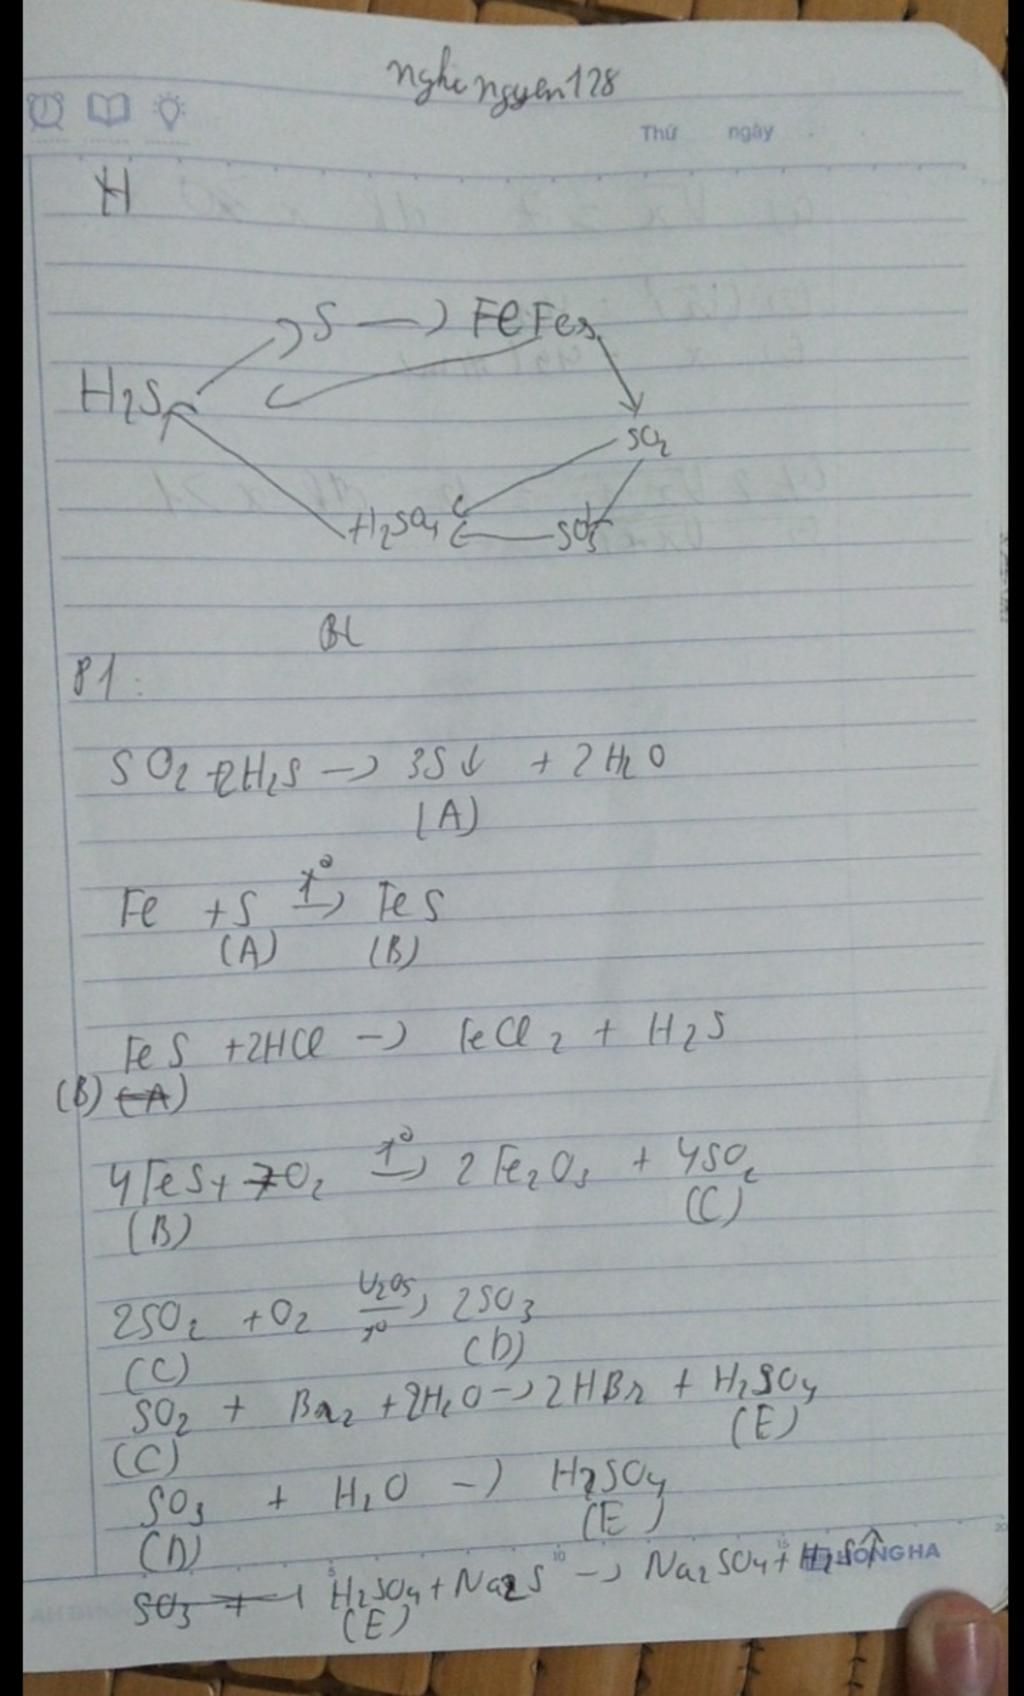 Nghi nguyen 128
Thứ ngày
H
S → FeS
H2S
SO2
H2SO4 SO3
BL
P1:
SO2 + 2H2S → 3S↓ + 2H2O
(A)
Fe + S t° → FeS
(A) (B)
FeS + 2HCl → FeCl2 + H2S
(B) (A)
4FeS + 7O2 t° → 2Fe2O3 + 4SO2
(B) (C)
2SO2 + O2 V2O5 t° → 2SO3
(C) (D)
SO2 + Br2 + 2H2O → 2HBr + H2SO4
(C) (E)
SO3 + H2O → H2SO4
(D) (E)
SO3 + H2SO4 + Na2S → Na2SO4 + H2S↑
(E)
HONG HA